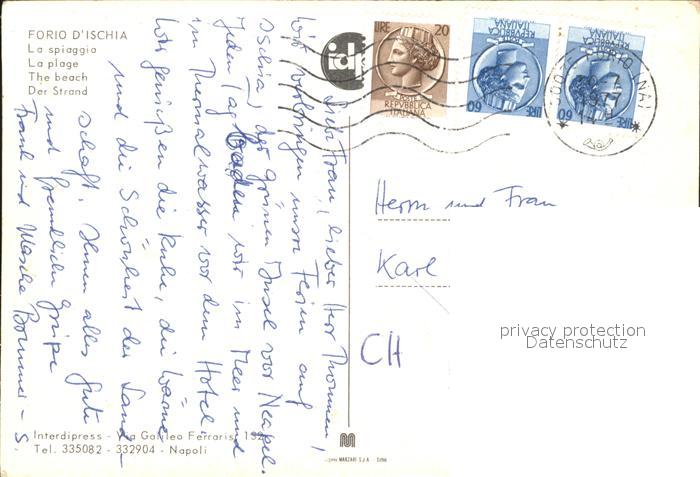 FORIO D'ISCHIA
La spiaggia
La plage
The beach
Der Strand
Liebe Frau, lieber Herr Thommen,
wir verbringen unsre Ferien auf
Ischia, der grünen Insel vor Neapel.
Jeden Tag baden wir im Meer und
im Thermalwasser vor dem Hotel.
Wir genießen die Ruhe, die Wärme
und die Schönheit der Land-
schaft. Ihnen alles Gute
und freundliche Grüße
Frank und
LIRE 20
POSTE
REPVBBLICA
ITALIANA
LIRE 60
REPVBBLICA
ITALIANA
LIRE 60
REPVBBLICA
ITALIANA
FORIO (NA)
Herrn und Frau
Karl
CH
privacy protection
Datenschutz
Interdipress - Via Galileo Ferraris, 132
Tel. 335082 - 332904 - Napoli
MANZARI S.p.A.